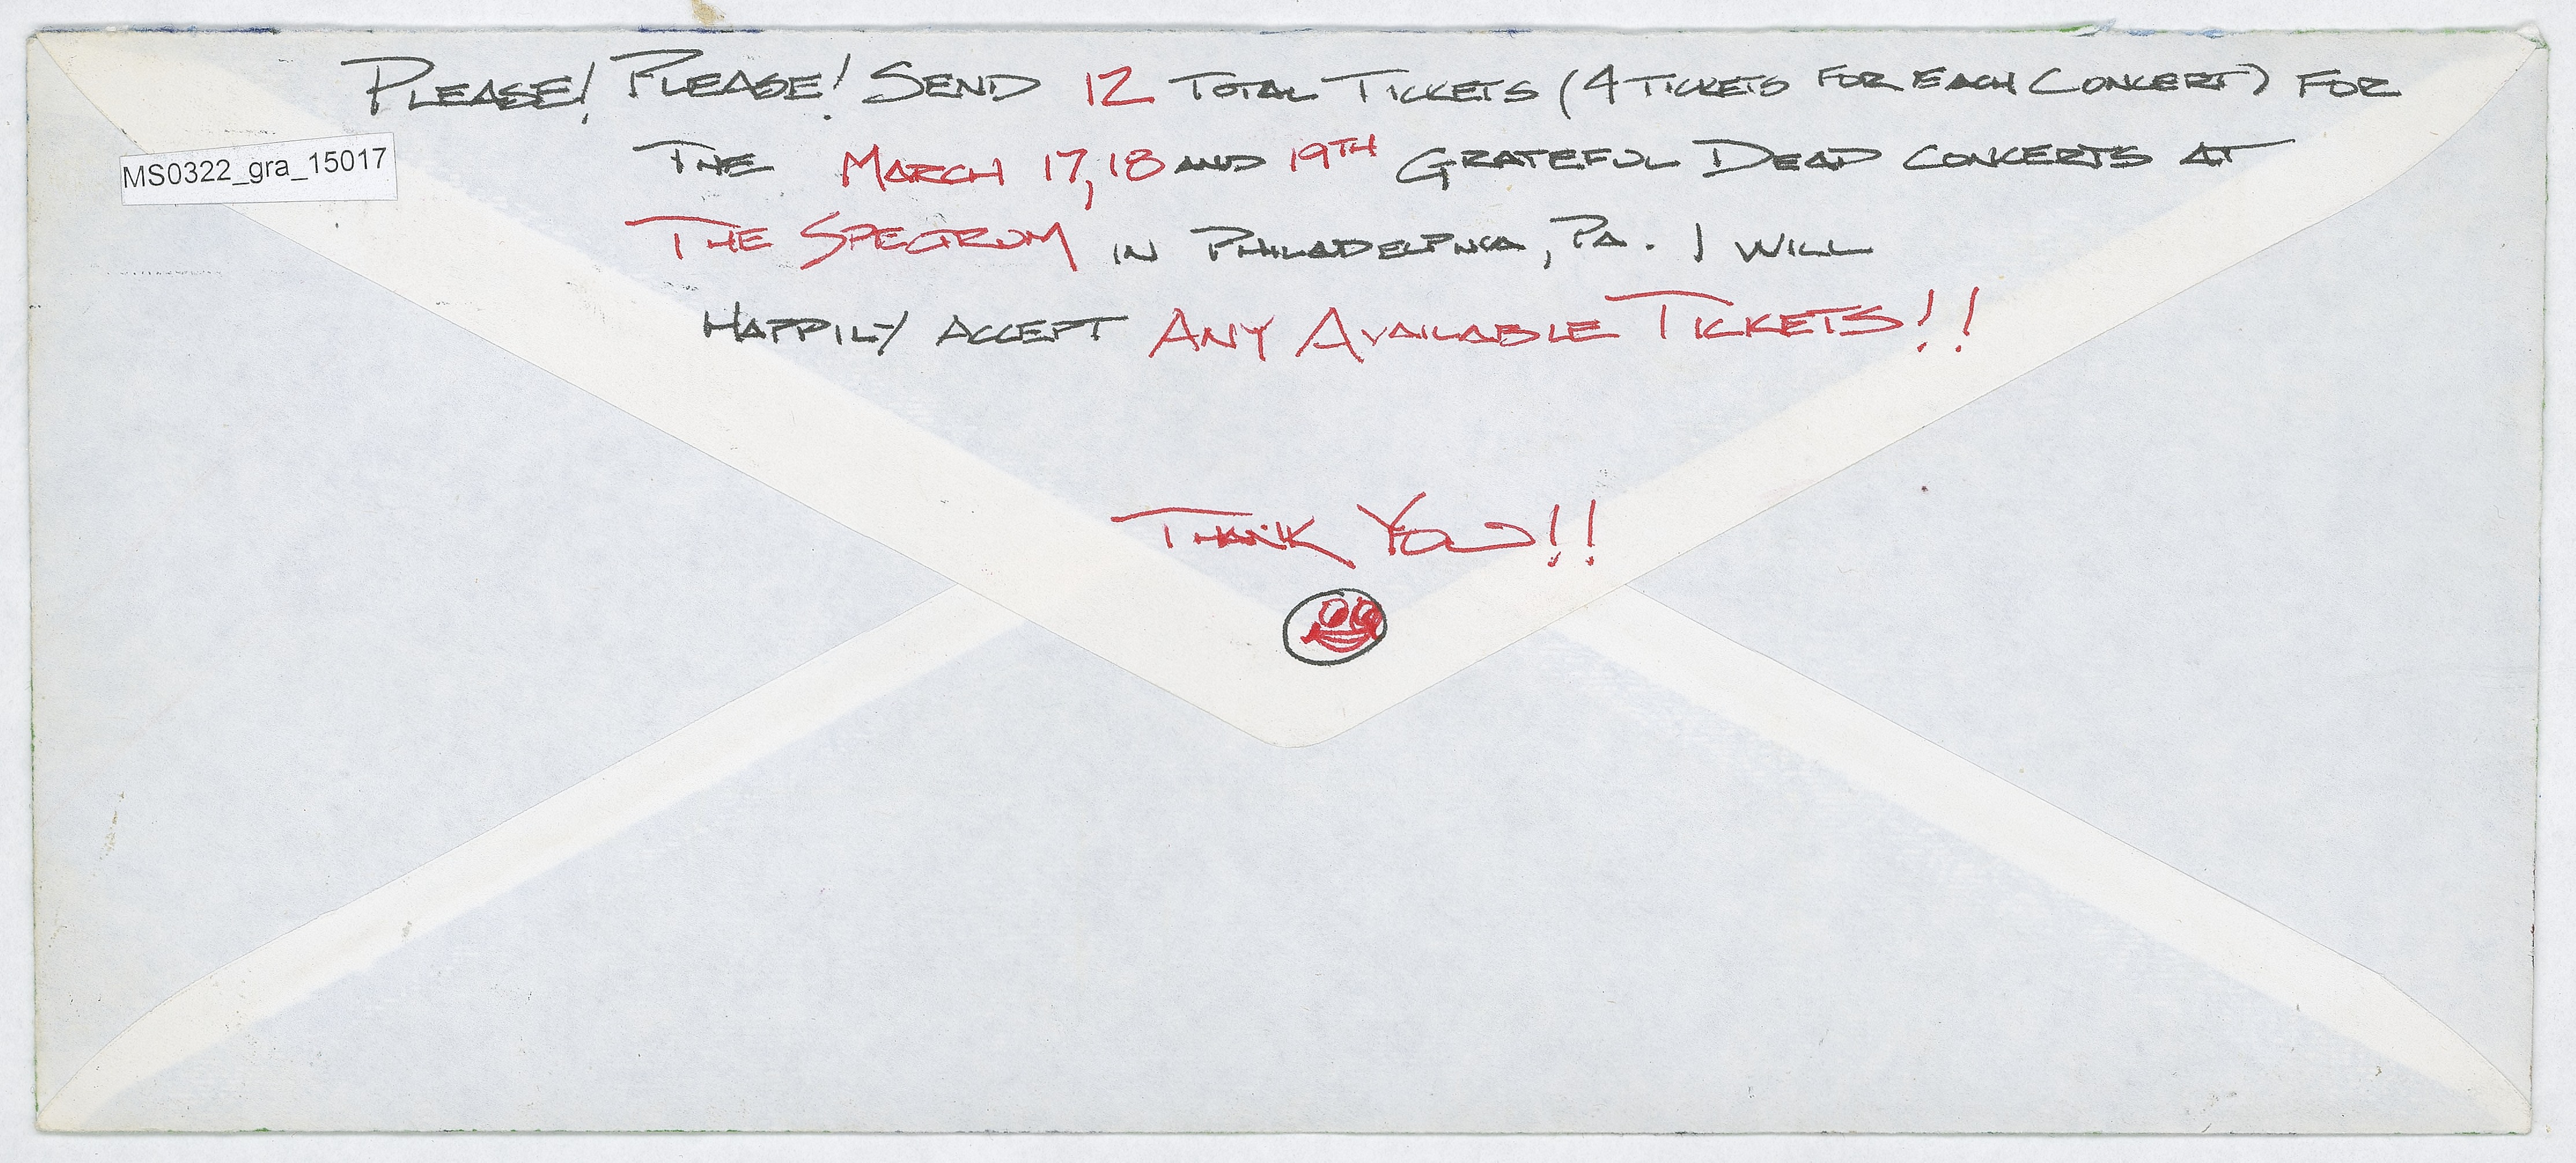 PLEASE! PLEASE! SEND 12 TOTAL TICKETS (4 TICKETS FOR EACH CONCERT) FOR
MS0322_gra_15017
THE MARCH 17, 18 AND 19TH GRATEFUL DEAD CONCERTS AT
THE SPECTRUM IN PHILADELPHIA, PA. I WILL
HAPPILY ACCEPT ANY AVAILABLE TICKETS!!
THANK YOU!!